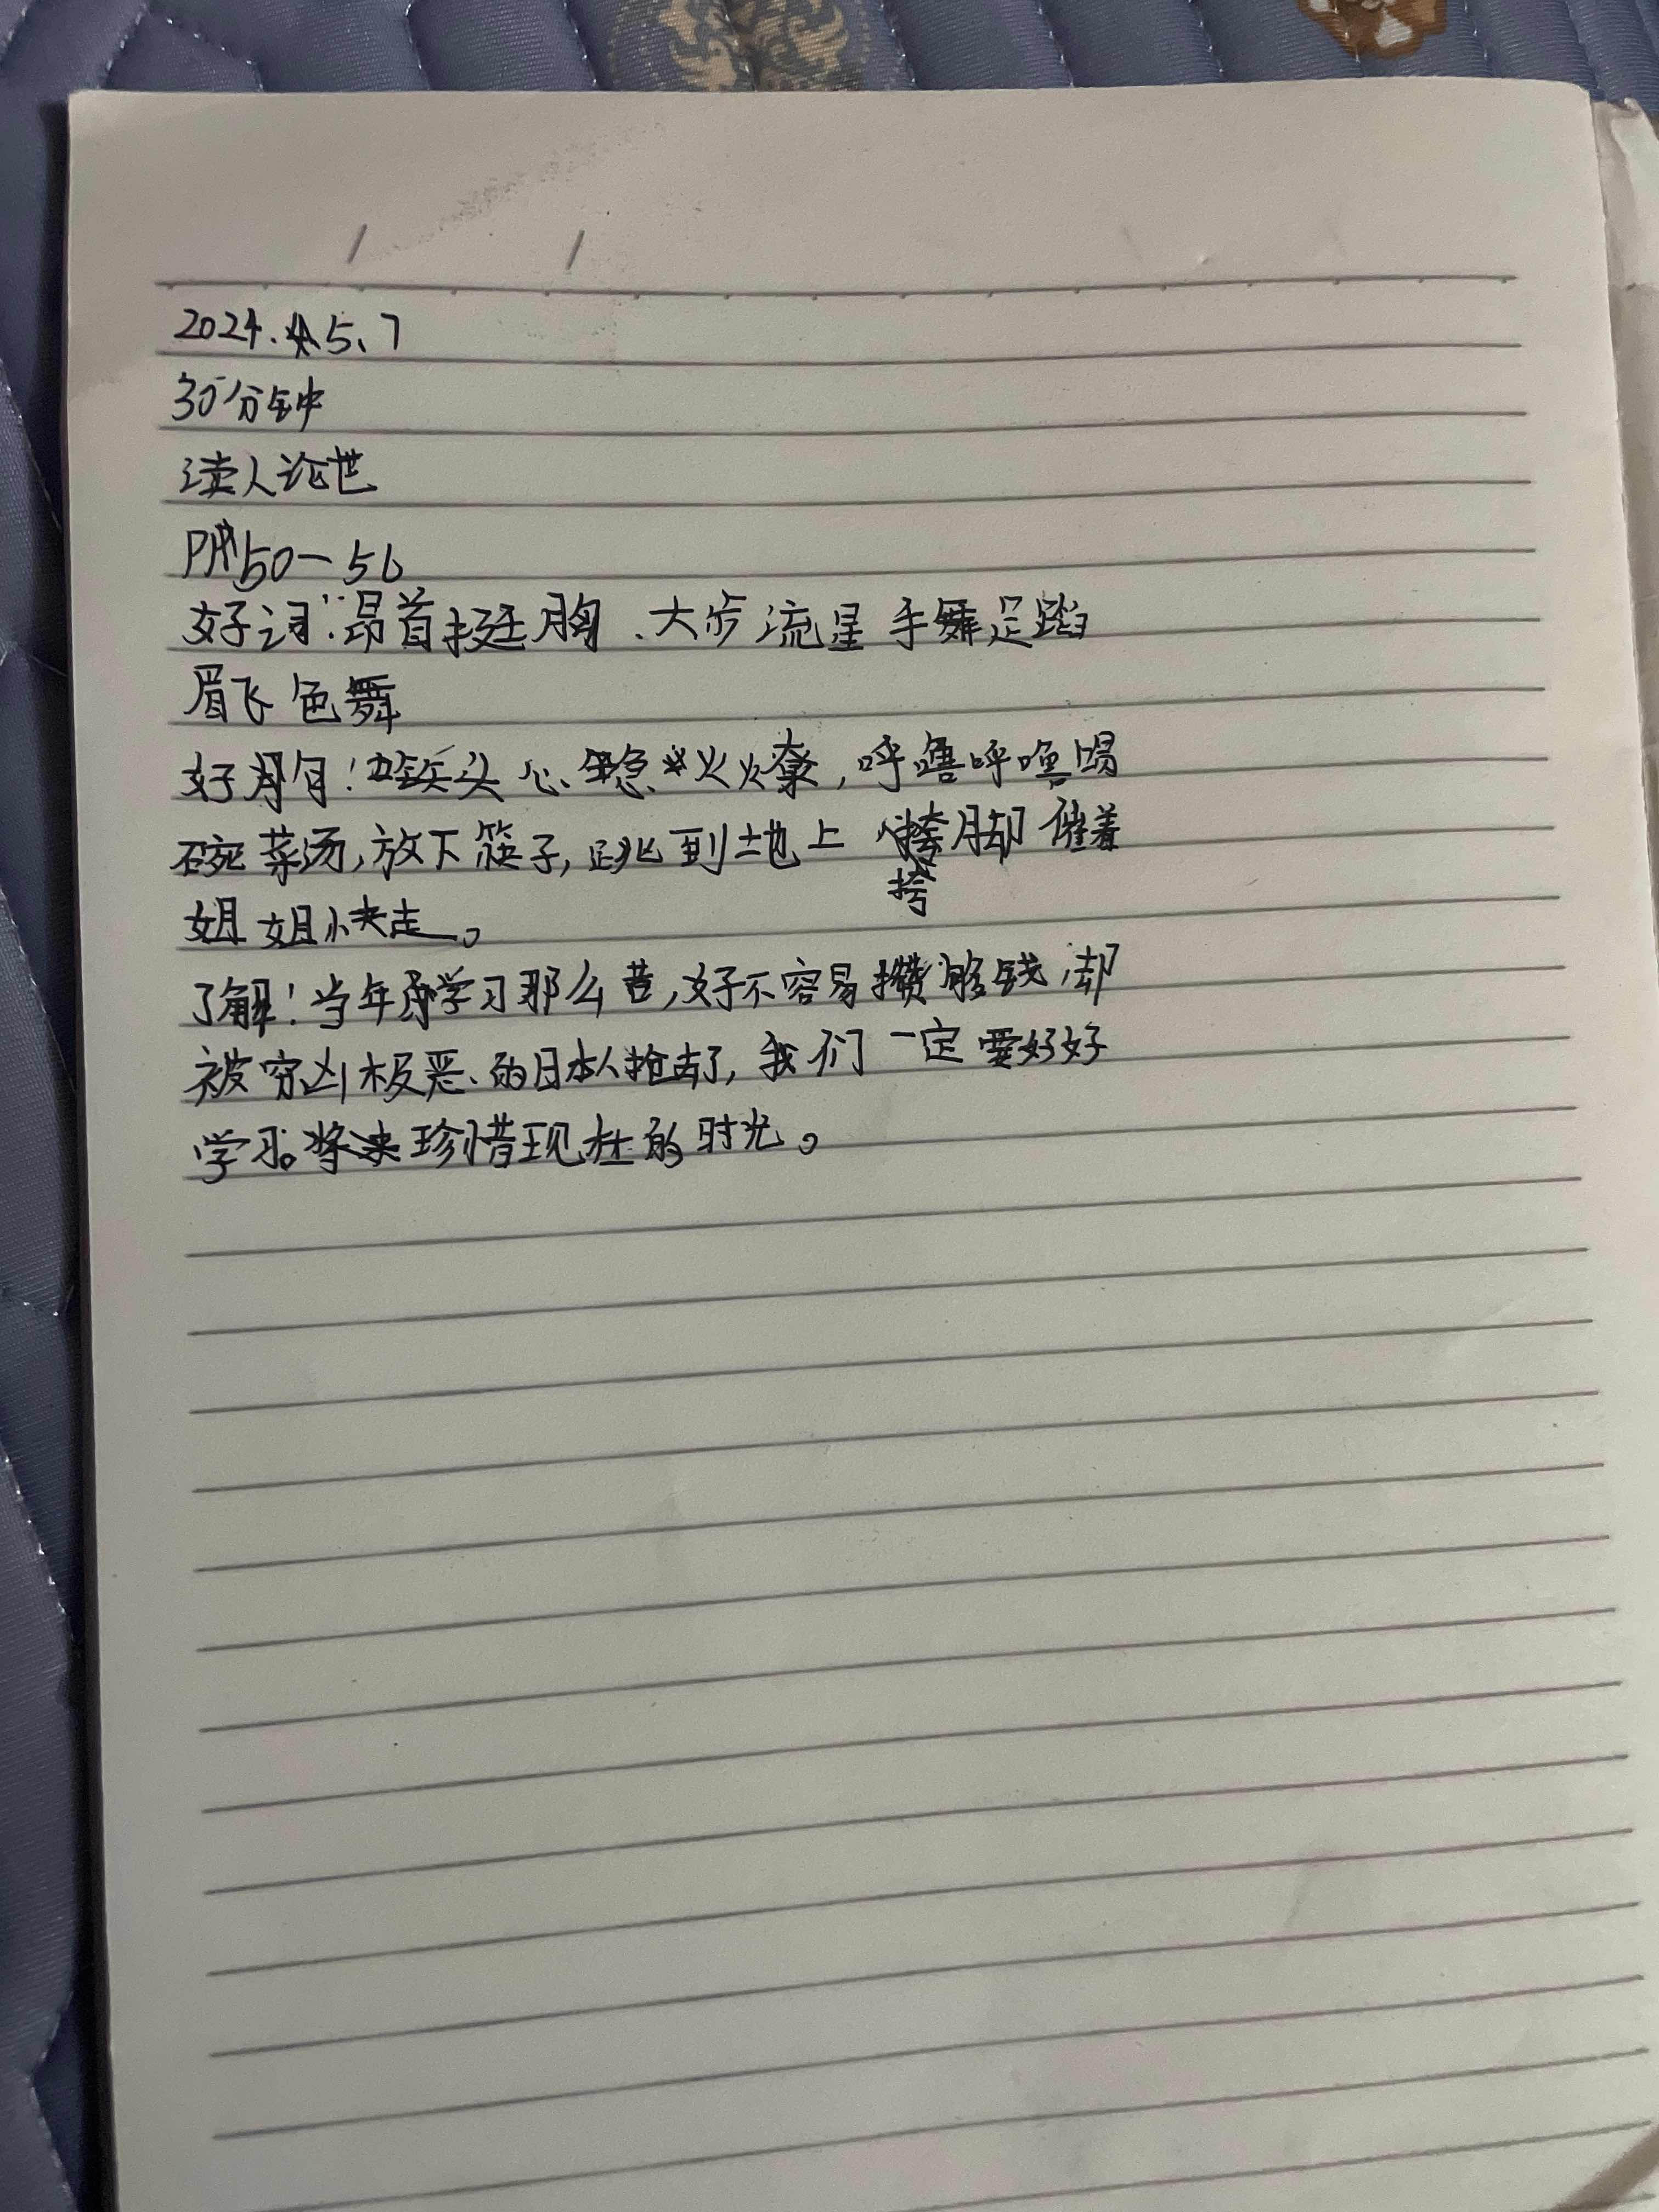 2024.5.7
30分钟
读人论世
P50—56
好词:昂首挺胸、大步流星 手舞足蹈
眉飞色舞
好句:罐头心急火燎,呼噜呼噜喝
碗菜汤,放下筷子,跳到地上 挎脚催着
姐姐快走。
了解!当年学习那么苦,好不容易攒够钱,却
被穷凶极恶的日本人抢去了,我们一定要好好
学习。将来珍惜现在的时光。